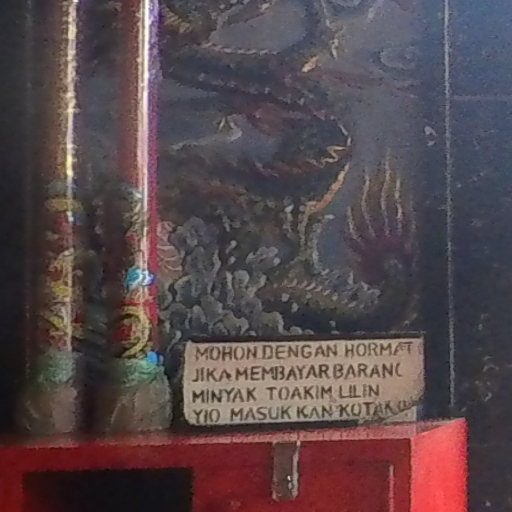 MOHON DENGAN HORMAT
JIKA MEMBAYAR BARANG
MINYAK TOAKIM LILIN
YIO MASUKKAN KOTAK